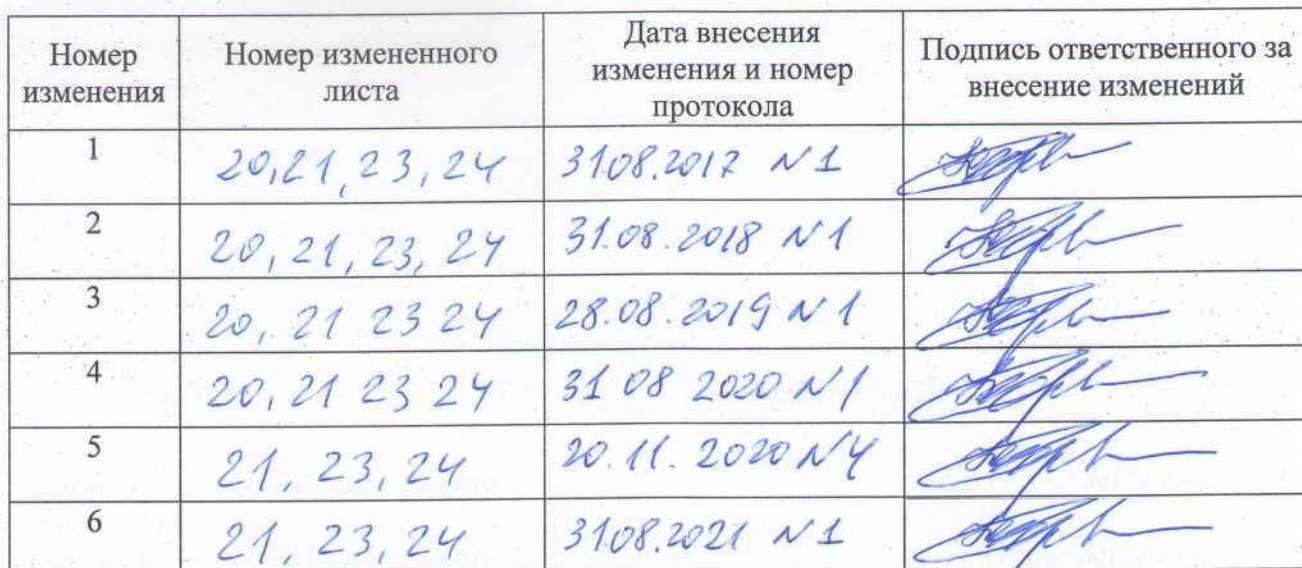 Номер изменения Номер измененного листа Дата внесения изменения и номер протокола Подпись ответственного за внесение изменений
1 20,21,23,24 31.08.2017 N1
2 20,21,23,24 31.08.2018 N1
3 20, 21 23 24 28.08.2019 N1
4 20,21 23 24 31 08 2020 N1
5 21, 23,24 20.11.2020 N4
6 21, 23,24 31.08.2021 N1